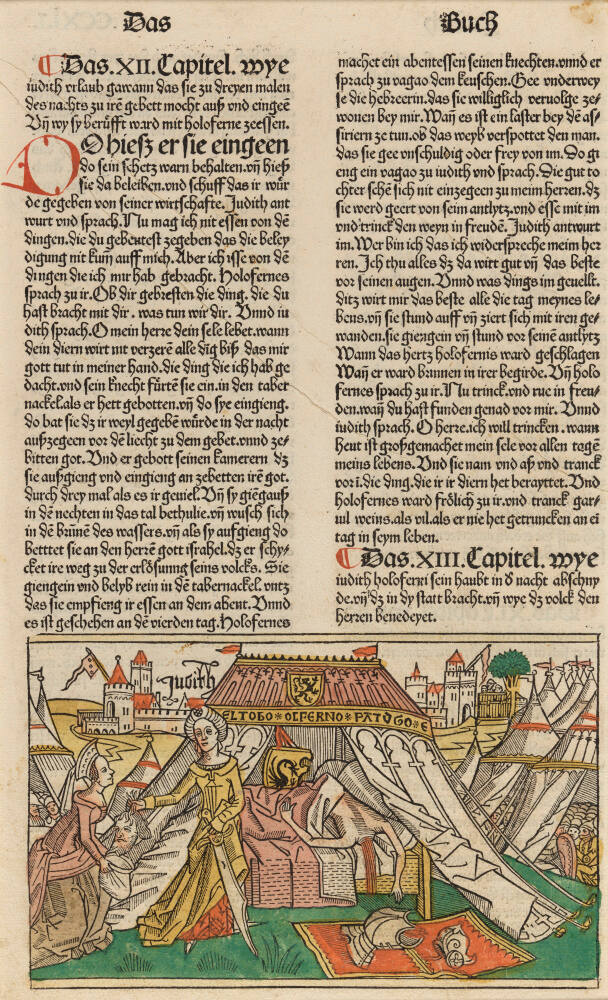 Das
Buch
Das.XII.Capitel. wye
iudith vrlaub gawann das sie zu dreyen malen
des nachts zu irē gebett mocht auß vnd eingeē
Vñ wy sy berüfft ward mit holoferne zeessen.
DO hiesz er sie eingeen
do sein schetz warn behalten.vñ hieß
sie da beleiben.vnd schuff das ir wür
de gegeben von seiner wirtschafte. Judith ant
wurt vnd sprach. Nu mag ich nit essen von dē
dingen.die du gebeutest zegeben das die beley
digung nit kum̄ auff mich. Aber ich isse von dē
dingen die ich mir hab gebracht. Holofernes
sprach zu ir. Ob dir gebresten die ding. die du
hast bracht mit dir. was tun wir dir. Vnnd iu
dith sprach. O mein herre dein sele lebet.wann
dein diern wirt nit verzerē alle dīg biß das mir
gott tut in meiner hand.die ding die ich hab ge
dacht.vnd sein knecht fürtē sie ein.in den taber
nackel.als er hett gebotten.vñ do sye eingieng.
do bat sie dz ir weyl gegebē würde in der nacht
außzegeen vor dē liecht zu dem gebet.vnnd ze-
bitten got. Vnd er gebott seinen kamerern dz
sie außgieng vnd eingieng an zebetten irē got.
durch drey mal als es ir geuiel. Vñ sy giēg auß
in dē nechten in das tal bethulie.vñ wusch sich
in dē brūnē des wassers.vñ als sy aufgieng do
betttet sie an den herrē gott israhel.dz er schy-
cket ire weg zu der erlösunng seins volcks. Sie
giengein vnd belyb rein in dē tabernackel.vntz
das sie empfieng ir essen an dem abent. Vnnd
es ist geschehen an dē vierden tag. Holofernes
machet ein abentessen seinen knechten.vnnd er
sprach zu vagao dem keuschen. Gee vnderwey
se die hebreerin.das sie williglich veruolge ze-
wonen bey mir. Wañ es ist ein laster bey dē as-
siriern ze tun.ob das weyb verspottet den man.
das sie gee vnschuldig oder frey von im. Do gi
eng ein vagao zu iudith vnd sprach. Die gut to
chter schē sich nit einzegeen zu meim herren.dz
sie werd geert von seim antlytz.vnd esse mit im
vnd trinck den weyn in freudē. Judith antwurt
im. Wer bin ich das ich widerspreche meim her
ren. Ich thu alles dz da wirt gut vñ das beste
vor seinen augen. Vnnd was dings im geuellt.
ditz wirt mir das beste alle die tag meynes le-
bens.vñ sie stund auff vñ ziert sich mit iren ge-
wanden.sie giengein vñ stund vor seinē antlytz
Wann das hertz holofernis ward geschlagen
Wañ er ward brinnen in irer begirde. Vñ holo
fernes sprach zu ir. Nu trinck.vnd rue in freu-
den.wañ du hast funden genad vor mir. Vnnd
iudith sprach. O herre.ich will trincken. wann
heut ist großgemachet mein sele vor allen tagē
meins lebens. Vnd sie nam vnd aß vnd tranck
vor ī.die ding.die ir ir diern het berayttet. Vnd
holofernes ward frölich zu ir.vnd tranck gar-
uil weins.als vil.als er nie het getruncken an eī
tag in seym leben.
Das.XIII.Capitel. wye
iudith holoferni sein haubt in d nacht abschny
de.vñ dz in dy statt bracht.vñ wye dz volck den
herren benedeyet.
Judith
ELTOBO * OLFERNO * PATVGO * E